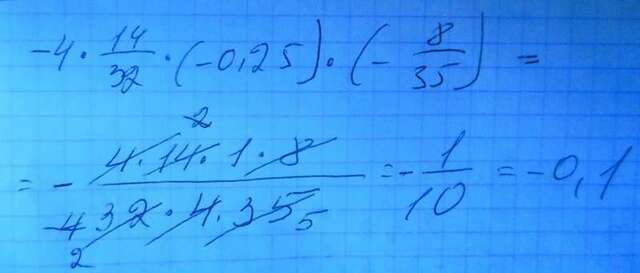 -4 · 14/32 · (-0,25) · (- 8/35) =
2
= - 4·14·1·8 / 32·4·35 = - 1/10 = -0,1
4 5
2